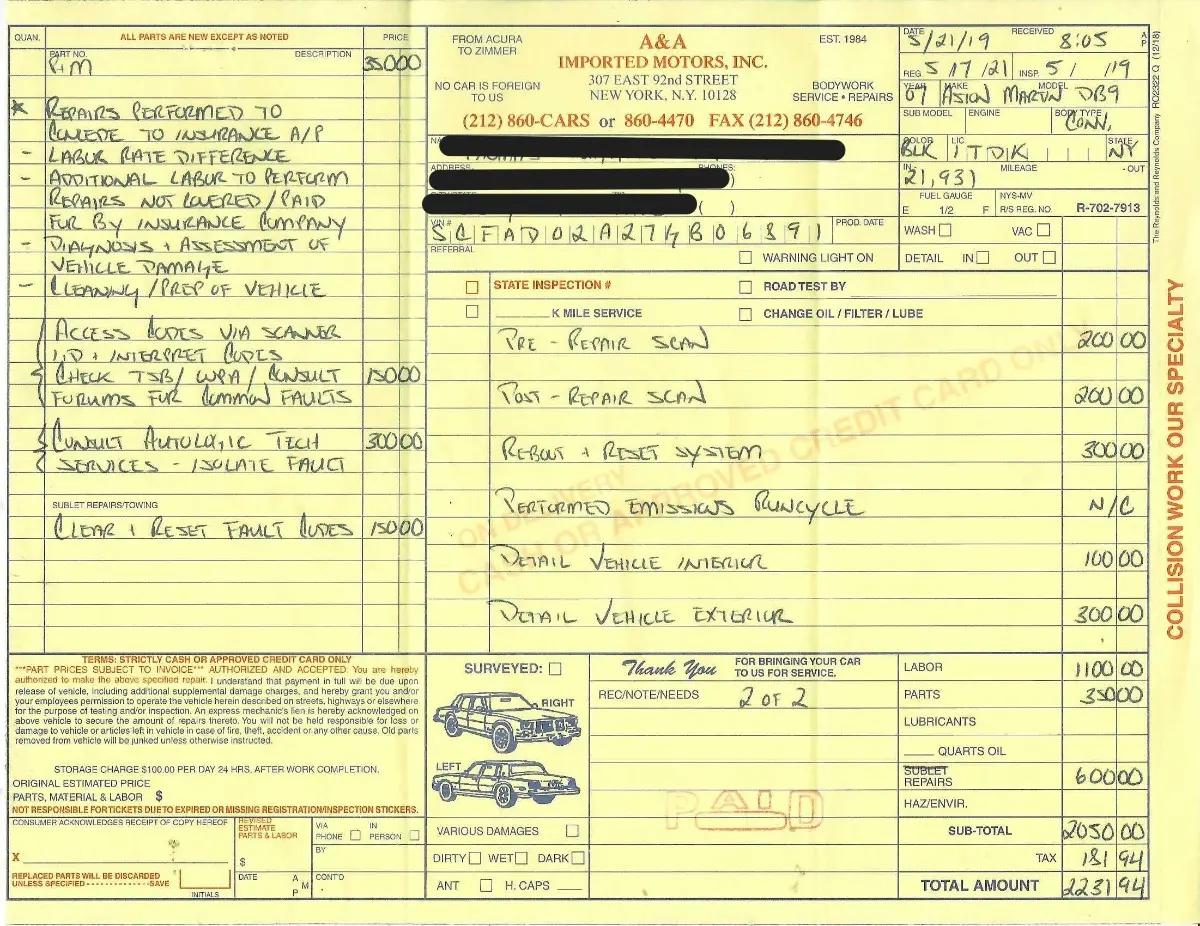 QUAN.
ALL PARTS ARE NEW EXCEPT AS NOTED
PRICE
PART NO.
DESCRIPTION
R+M 350 00
* REPAIRS PERFORMED TO
CONCEDE TO INSURANCE A/P
- LABOR RATE DIFFERENCE
- ADDITIONAL LABOR TO PERFORM
REPAIRS NOT COVERED / PAID
FOR BY INSURANCE COMPANY
- DIAGNOSIS + ASSESSMENT OF
VEHICLE DAMAGE
- CLEANING / PREP OF VEHICLE
ACCESS CODES VIA SCANNER
I.D + INTERPRET CODES
CHECK TSB / WPA / CONSULT 150 00
FORUMS FOR COMMON FAULTS
CONSULT AUTOLOGIC TECH 300 00
SERVICES - ISOLATE FAULT
SUBLET REPAIRS/TOWING
CLEAR + RESET FAULT CODES 150 00
TERMS: STRICTLY CASH OR APPROVED CREDIT CARD ONLY
***PART PRICES SUBJECT TO INVOICE*** AUTHORIZED AND ACCEPTED: You are hereby
authorized to make the above specified repair. I understand that payment in full will be due upon
release of vehicle, including additional supplemental damage charges, and hereby grant you and/or
your employees permission to operate the vehicle herein described on streets, highways or elsewhere
for the purpose of testing and/or inspection. An express mechanic's lien is hereby acknowledged on
above vehicle to secure the amount of repairs thereto. You will not be held responsible for loss or
damage to vehicle or articles left in vehicle in case of fire, theft, accident or any other cause. Old parts
removed from vehicle will be junked unless otherwise instructed.
STORAGE CHARGE $100.00 PER DAY 24 HRS. AFTER WORK COMPLETION.
ORIGINAL ESTIMATED PRICE
PARTS, MATERIAL & LABOR $
NOT RESPONSIBLE FOR TICKETS DUE TO EXPIRED OR MISSING REGISTRATION/INSPECTION STICKERS.
CONSUMER ACKNOWLEDGES RECEIPT OF COPY HEREOF
X
REPLACED PARTS WILL BE DISCARDED
UNLESS SPECIFIED - - - - - - - - - - - - - - -SAVE
INITIALS
REVISED
ESTIMATE
PARTS & LABOR
$
DATE
A
M
P
VIA
PHONE
IN
PERSON
BY
CONT'D
FROM ACURA
TO ZIMMER
A&A
EST. 1984
IMPORTED MOTORS, INC.
307 EAST 92nd STREET
NEW YORK, N.Y. 10128
NO CAR IS FOREIGN
TO US
BODYWORK
SERVICE • REPAIRS
(212) 860-CARS or 860-4470 FAX (212) 860-4746
ADDRESS
PHONES:
)
( )
VIN #
SCFAD02A274B06391
PROD. DATE
REFERRAL
WARNING LIGHT ON
DATE 5/21/19 RECEIVED 8:05 A P
REG 5/17/21 INSP. 5/ /19
YEAR 07 MAKE ASTON MARTIN MODEL DB9
SUB MODEL
ENGINE
BODY TYPE CONV.
COLOR BLK LIC. 1TDK STATE NY
IN - 21,931 MILEAGE - OUT
FUEL GAUGE
E 1/2 F
NYS-MV
R/S REG. NO.
R-702-7913
WASH
VAC
DETAIL IN OUT
The Reynolds and Reynolds Company RO2322 Q (12/18)
STATE INSPECTION #
ROAD TEST BY
K MILE SERVICE
CHANGE OIL / FILTER / LUBE
PRE - REPAIR SCAN 200 00
POST - REPAIR SCAN 200 00
REBOOT + RESET SYSTEM 300 00
PERFORMED EMISSIONS RUNCYCLE N/C
DETAIL VEHICLE INTERIOR 100 00
DETAIL VEHICLE EXTERIOR 300 00
ON DELIVERY
CASH OR APPROVED CREDIT CARD ONLY
COLLISION WORK OUR SPECIALTY
SURVEYED:
RIGHT
LEFT
VARIOUS DAMAGES
DIRTY WET DARK
ANT H. CAPS
Thank You FOR BRINGING YOUR CAR
TO US FOR SERVICE.
REC/NOTE/NEEDS 2 OF 2
PAID
LABOR 1100 00
PARTS 350 00
LUBRICANTS
QUARTS OIL
SUBLET
REPAIRS 600 00
HAZ/ENVIR.
SUB-TOTAL 2050 00
TAX 181 94
TOTAL AMOUNT 2231 94